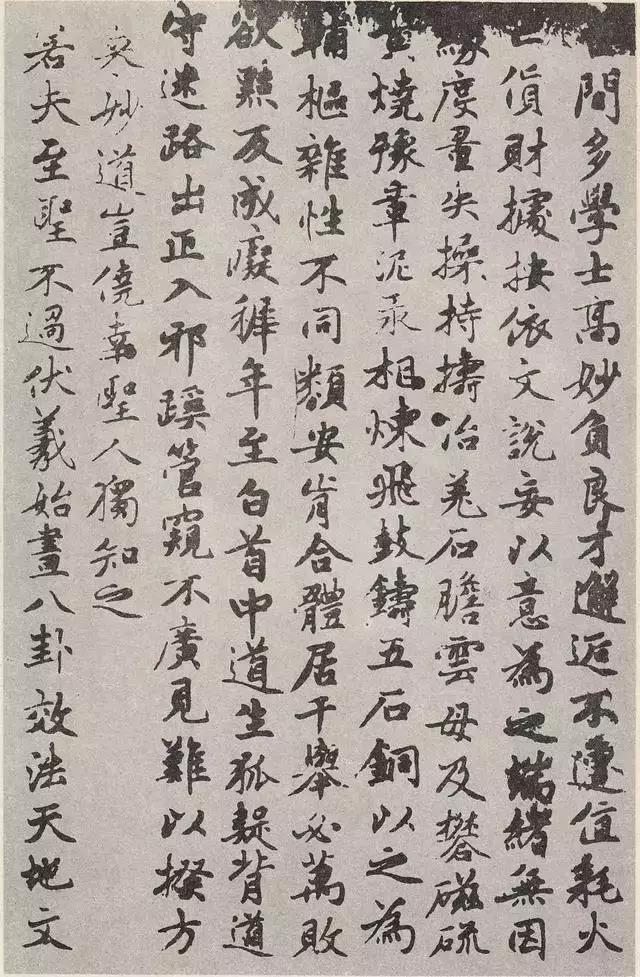 間多學士高妙負良才邂逅不遭值耗火
亡貨財據按依文說妄以意為之端緒無因
緣度量失操持擣治羌石膽雲母及礬磁硫
黃燒豫章泥汞相煉飛鼓鑄五石銅以之為
輔樞雜性不同類安肯合體居千舉必萬敗
欲黠反成癡稚年至白首中道生狐疑背道
守迷路出正入邪蹊管窺不廣見難以揆方
来妙道豈僥幸聖人獨知之
若夫至聖不過伏羲始畫八卦效法天地文